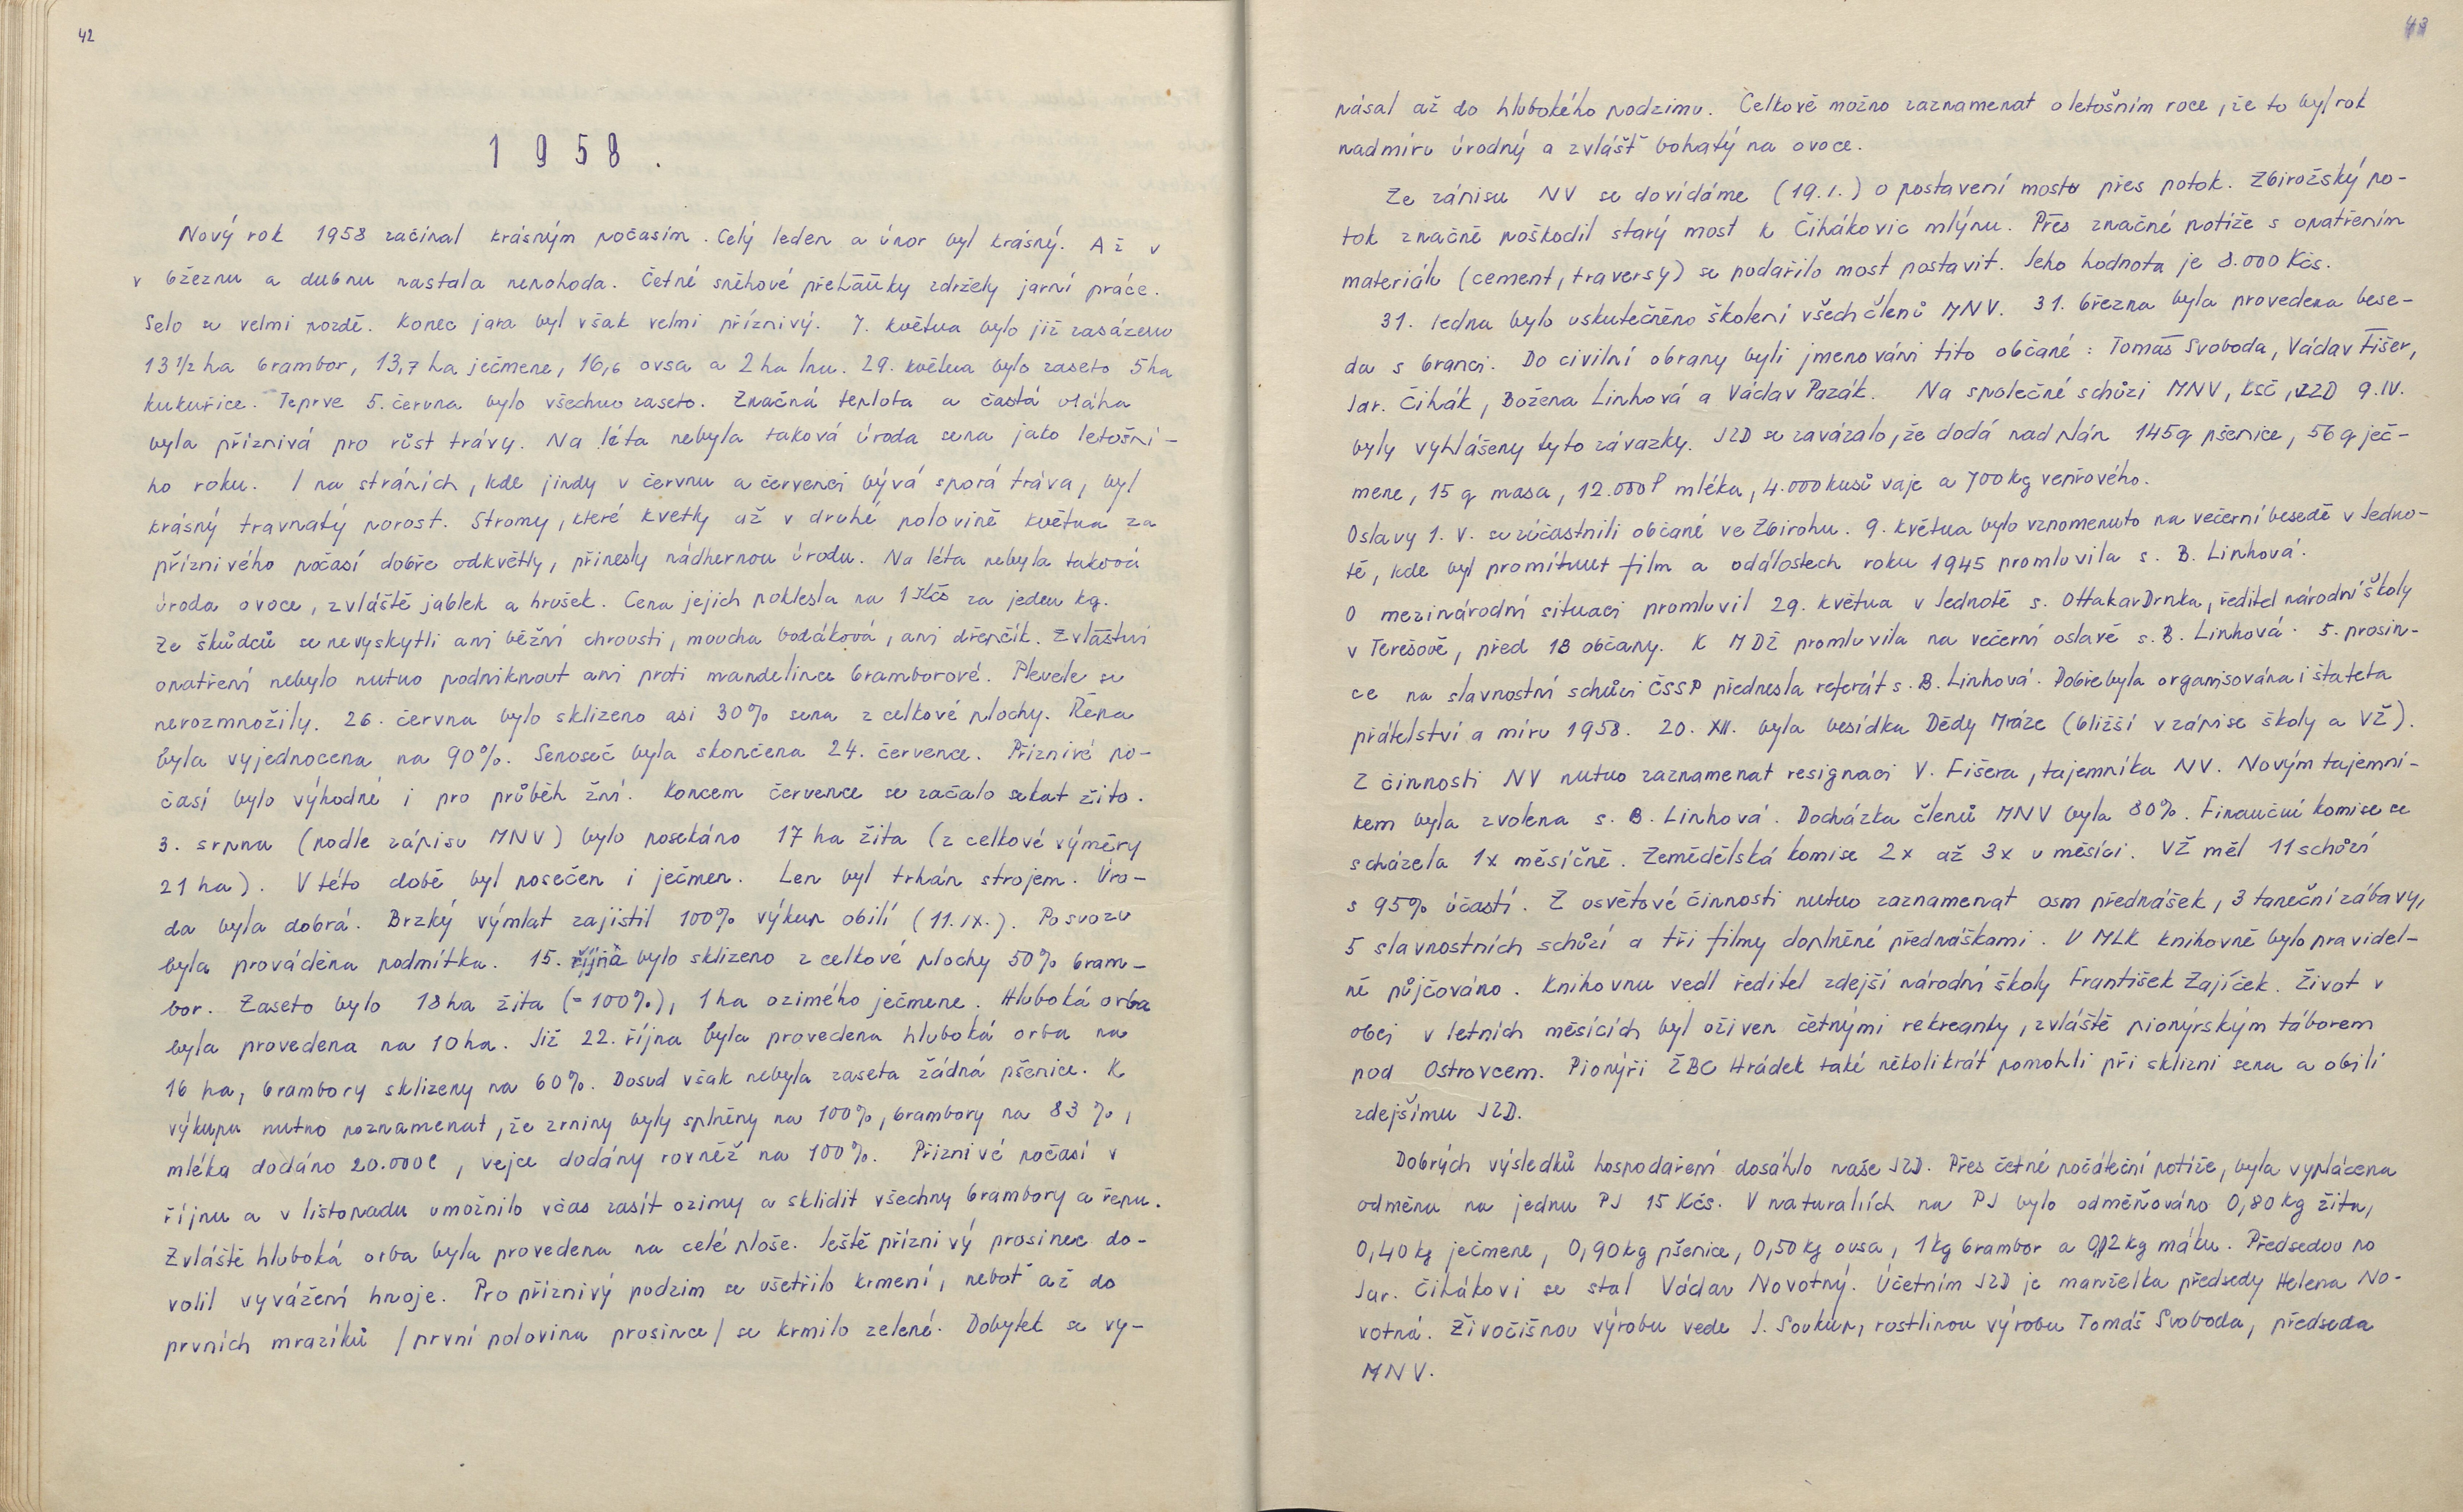 42
1958.
Nový rok 1958 začínal krásným počasím. Celý leden a únor byl krásný. Až v
v březnu a dubnu nastala nepohoda. Četné sněhové přeháňky zdržely jarní práce.
Selo se velmi pozdě. Konec jara byl však velmi příznivý. 7. května bylo již zasázeno
13 1/2 ha brambor, 13,7 ha ječmene, 16,6 ovsa a 2 ha lnu. 29. května bylo zaseto 5 ha
kukuřice. Teprve 5. června bylo všechno zaseto. Značná teplota a častá vláha
byla příznivá pro růst trávy. Na léta nebyla taková úroda sena jako letošní-
ho roku. I na stráních, kde jindy v červnu a červenci bývá sporá tráva, byl
krásný travnatý porost. Stromy, které kvetly až v druhé polovině května za
příznivého počasí dobře odkvětly, přinesly nádhernou úrodu. Na léta nebyla taková
úroda ovoce, zvláště jablek a hrušek. Cena jejich poklesla na 1 Kčs za jeden kg.
Ze škůdců se nevyskytli ani běžní chrousti, moucha bodáková, ani dřepčík. Zvláštní
opatření nebylo nutno podniknout ani proti mandelince bramborové. Plevele se
nerozmnožily. 26. června bylo sklizeno asi 30% sena z celkové plochy. Řepa
byla vyjednocena na 90%. Senoseč byla skončena 24. července. Příznivé po-
časí bylo výhodné i pro průběh žní. Koncem července se začalo sekat žito.
3. srpna (podle zápisu MNV) bylo posekáno 17 ha žita (z celkové výměry
21 ha). V této době byl posečen i ječmen. Len byl trhán strojem. Úro-
da byla dobrá. Brzký výmlat zajistil 100% výkup obilí (11.IX.). Po svozu
byla prováděna podmítka. 15. října bylo sklizeno z celkové plochy 50% bram-
bor. Zaseto bylo 18 ha žita (=100%), 1 ha ozimého ječmene. Hluboká orba
byla provedena na 10 ha. Již 22. října byla provedena hluboká orba na
16 ha, brambory sklizeny na 60%. Dosud však nebyla zaseta žádná pšenice. K
výkupu nutno poznamenat, že zrniny byly splněny na 100%, brambory na 83%,
mléka dodáno 20.000 l, vejce dodány rovněž na 100%. Příznivé počasí v
říjnu a v listopadu umožnilo včas zasít ozimy a sklidit všechny brambory a řepu.
Zvláště hluboká orba byla provedena na celé ploše. Ještě příznivý prosinec do-
volil vyvážení hnoje. Pro příznivý podzim se ušetřilo krmení, neboť až do
prvních mrazíků /první polovina prosince/ se krmilo zelené. Dobytek se vy-
43
pásal až do hlubokého podzimu. Celkově možno zaznamenat o letošním roce, že to byl rok
nadmíru úrodný a zvlášť bohatý na ovoce.
Ze zápisu NV se dovídáme (19.1.) o postavení mostu přes potok. Zbirožský po-
tok značně poškodil starý most k Čihákovic mlýnu. Přes značné potíže s opatřením
materiálu (cement, traversy) se podařilo most postavit. Jeho hodnota je 8.000 Kčs.
31. ledna bylo uskutečněno školení všech členů MNV. 31. března byla provedena bese-
da s branci. Do civilní obrany byli jmenováni tito občané: Tomáš Svoboda, Václav Fišer,
Jar. Čihák, Božena Linhová a Václav Pazák. Na společné schůzi MNV, KSČ, JZD 9.IV.
byly vyhlášeny tyto závazky. JZD se zavázalo, že dodá nad plán 145 q pšenice, 56 q ječ-
mene, 15 q masa, 12.000 l mléka, 4.000 kusů vajec a 700 kg vepřového.
Oslavy 1. V. se zúčastnili občané ve Zbirohu. 9. května bylo vzpomenuto na večerní besedě v Jedno-
tě, kde byl promítnut film a událostech roku 1945 promluvila s. B. Linhová.
O mezinárodní situaci promluvil 29. května v Jednotě s. Ottakar Drnka, ředitel národní školy
v Terešově, před 18 občany. K MDŽ promluvila na večerní oslavě s. B. Linhová. 5. prosin-
ce na slavnostní schůzi ČSSP přednesla referát s. B. Linhová. Dobře byla organisována i štafeta
přátelství a míru 1958. 20. XII. byla besídka Dědy Mráze (bližší v zápise školy a VŽ).
Z činnosti NV nutno zaznamenat resignaci V. Fišera, tajemníka NV. Novým tajemní-
kem byla zvolena s. B. Linhová. Docházka členů MNV byla 80%. Finanční komise se
scházela 1x měsíčně. Zemědělská komise 2x až 3x v měsíci. VŽ měl 11 schůzí
s 95% účastí. Z osvětové činnosti nutno zaznamenat osm přednášek, 3 taneční zábavy,
5 slavnostních schůzí a tři filmy doplněné přednáškami. V MLK knihovně bylo pravidel-
ně půjčováno. Knihovnu vedl ředitel zdejší národní školy František Zajíček. Život v
obci v letních měsících byl oživen četnými rekreanty, zvláště pionýrským táborem
pod Ostrovcem. Pionýři ŽBC Hrádek také několikrát pomohli při sklizni sena a obilí
zdejšímu JZD.
Dobrých výsledků hospodaření dosáhlo naše JZD. Přes četné počáteční potíže, byla vyplácena
odměna na jednu PJ 15 Kčs. V naturaliích na PJ bylo odměňováno 0,80 kg žita,
0,40 kg ječmene, 0,90 kg pšenice, 0,50 kg ovsa, 1 kg brambor a 0,12 kg máku. Předsedou po
Jar. Čihákovi se stal Václav Novotný. Účetním JZD je manželka předsedy Helena No-
votná. Živočišnou výrobu vede J. Soukup, rostlinou výrobu Tomáš Svoboda, předseda
MNV.